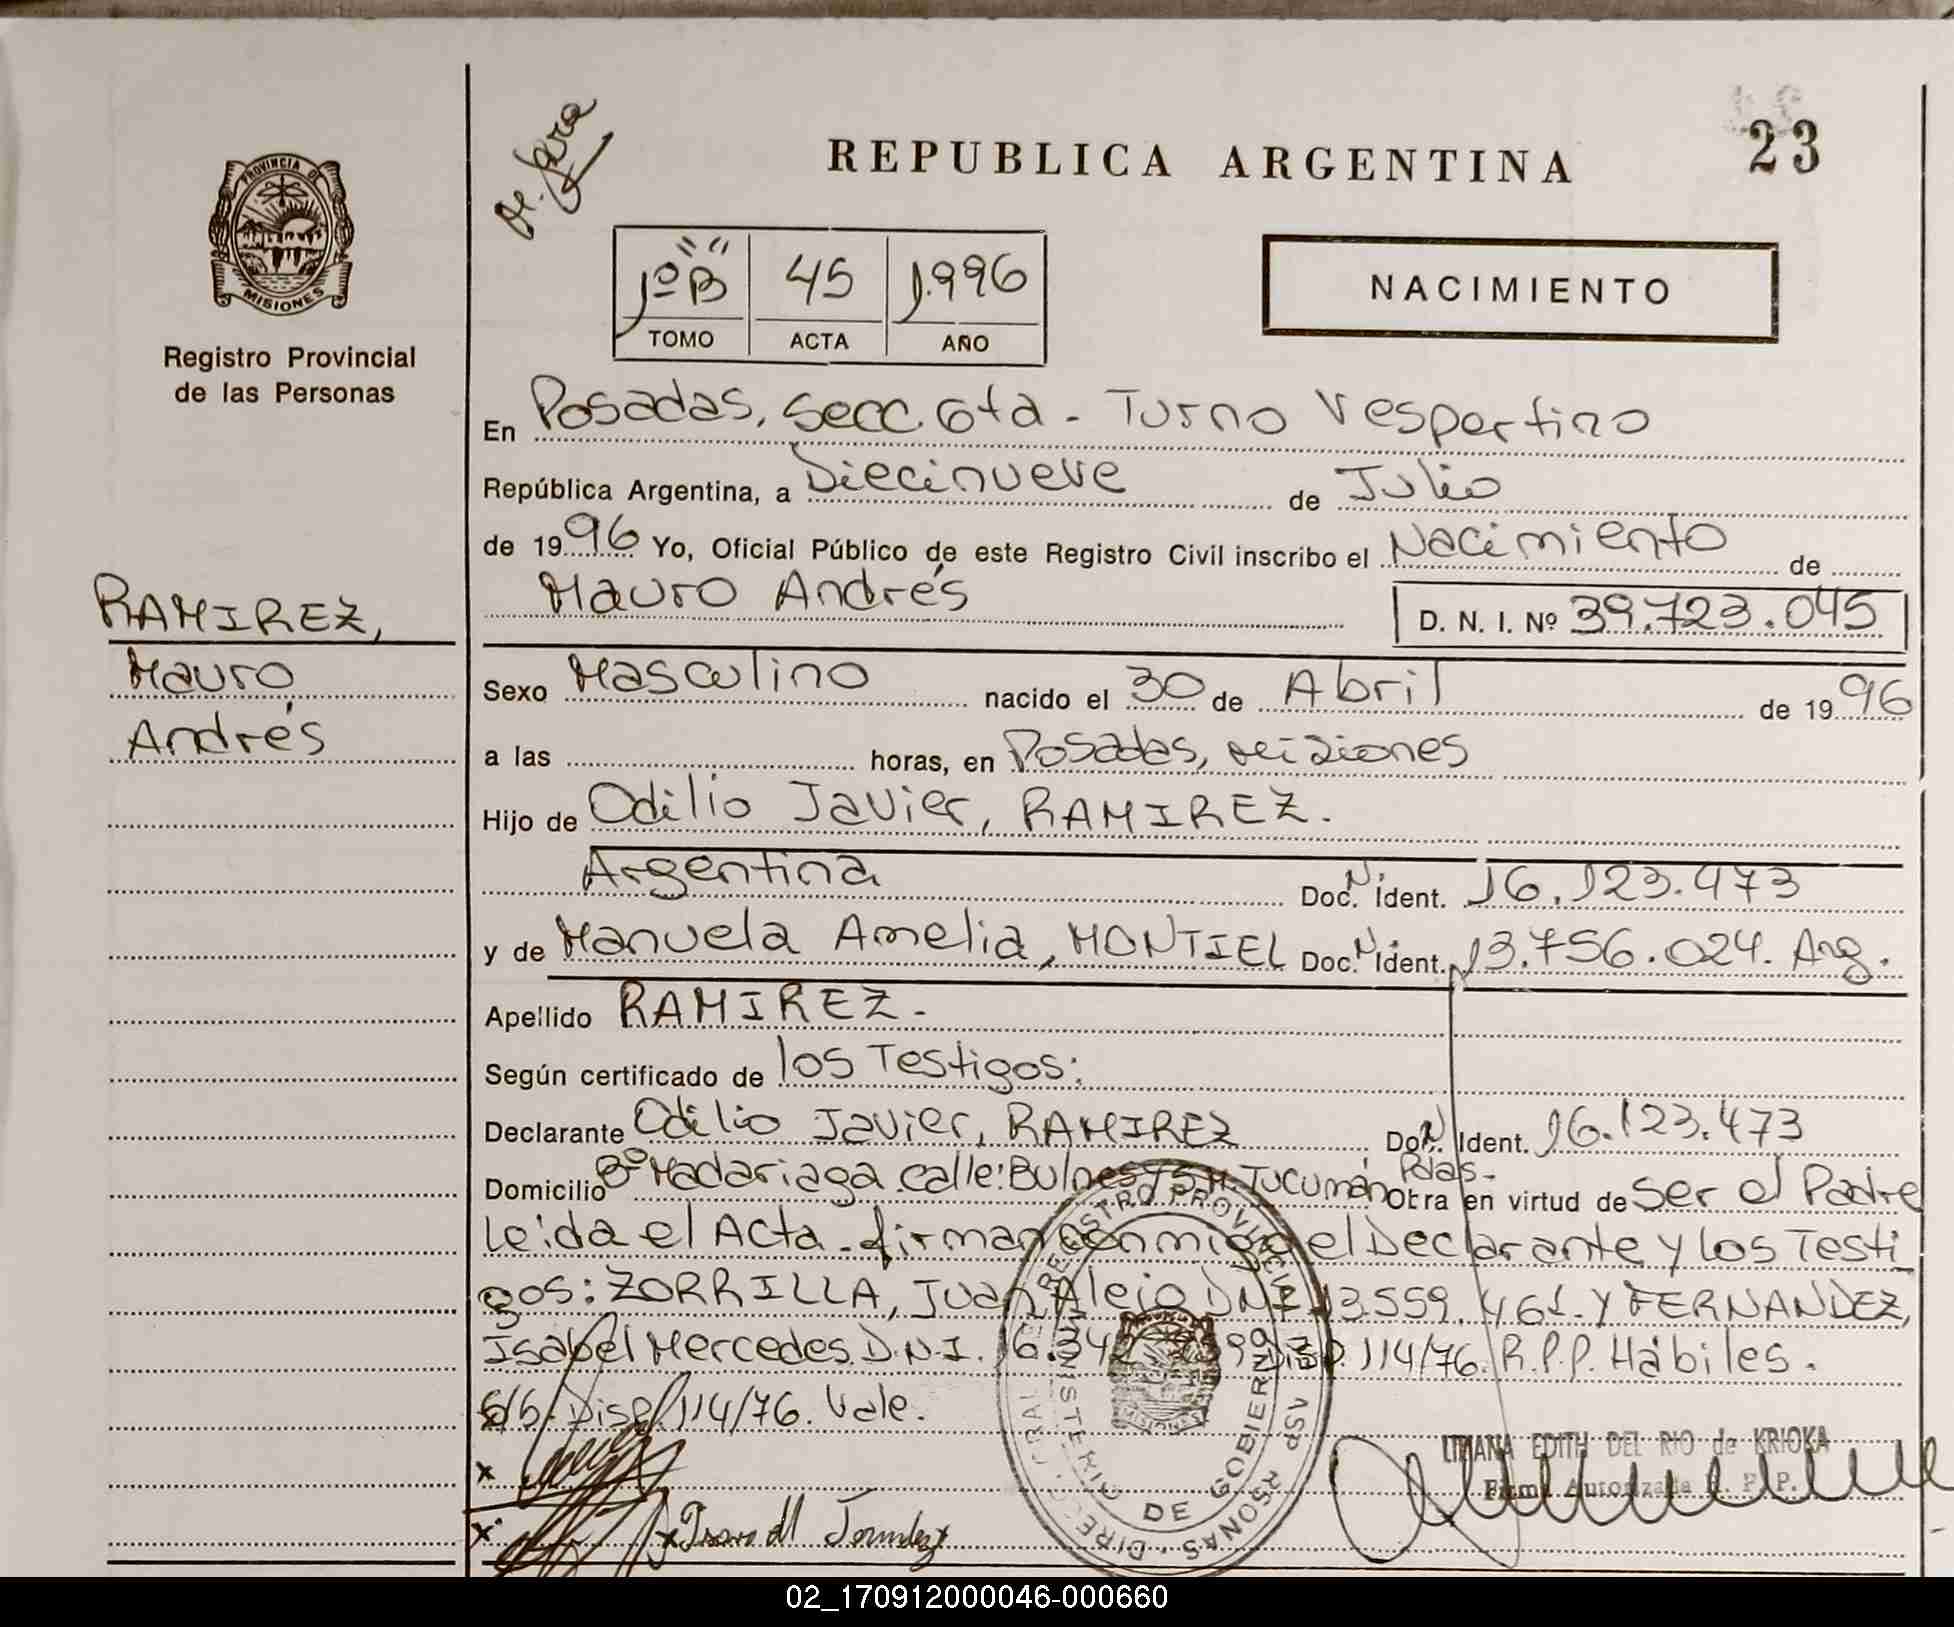 PROVINCIA DE
MISIONES
Registro Provincial
de las Personas
RAMIREZ,
Mauro
Andrés
REPUBLICA ARGENTINA
23
1º "B" 45 1.996
TOMO ACTA AÑO
NACIMIENTO
En Posadas, Secc. 6ta - Turno Vespertino
República Argentina, a Diecinueve de Julio
de 1996 Yo, Oficial Público de este Registro Civil inscribo el Nacimiento de
Mauro Andrés D. N. I. Nº 39.723.045
Sexo Masculino nacido el 30 de Abril de 1996
a las horas, en Posadas, Misiones
Hijo de Odilio Javier, RAMIREZ.
Argentina Doc. N. Ident. 16.123.473
y de Manuela Amelia, MONTIEL Doc. N. Ident. 13.756.024. Arg.
Apellido RAMIREZ.-
Según certificado de los Testigos:
Declarante Odilio Javier, RAMIREZ Doc. N. Ident. 16.123.473
Domicilio Bº Madariaga calle: Bulnes y Tucumán Pdas.- Otra en virtud de Ser el Padre
Leida el Acta - firman conmigo el Declarante y los Testi
gos: ZORRILLA, Juan Alejo DNI 13.559.461. Y FERNANDEZ,
Isabel Mercedes D.N.I. 16.342. Disp. 114/76. R.P.P. Hábiles.
S/b. Disp. 114/76. Vale.
DIRECC. GRAL. DEL REGISTRO PROVINCIAL DE LAS PERSONAS
MINISTERIO DE GOBIERNO
MISIONES
LILIANA EDITH DEL RIO de KRIOKA
Firma Autorizada R. P. P.
02_170912000046-000660